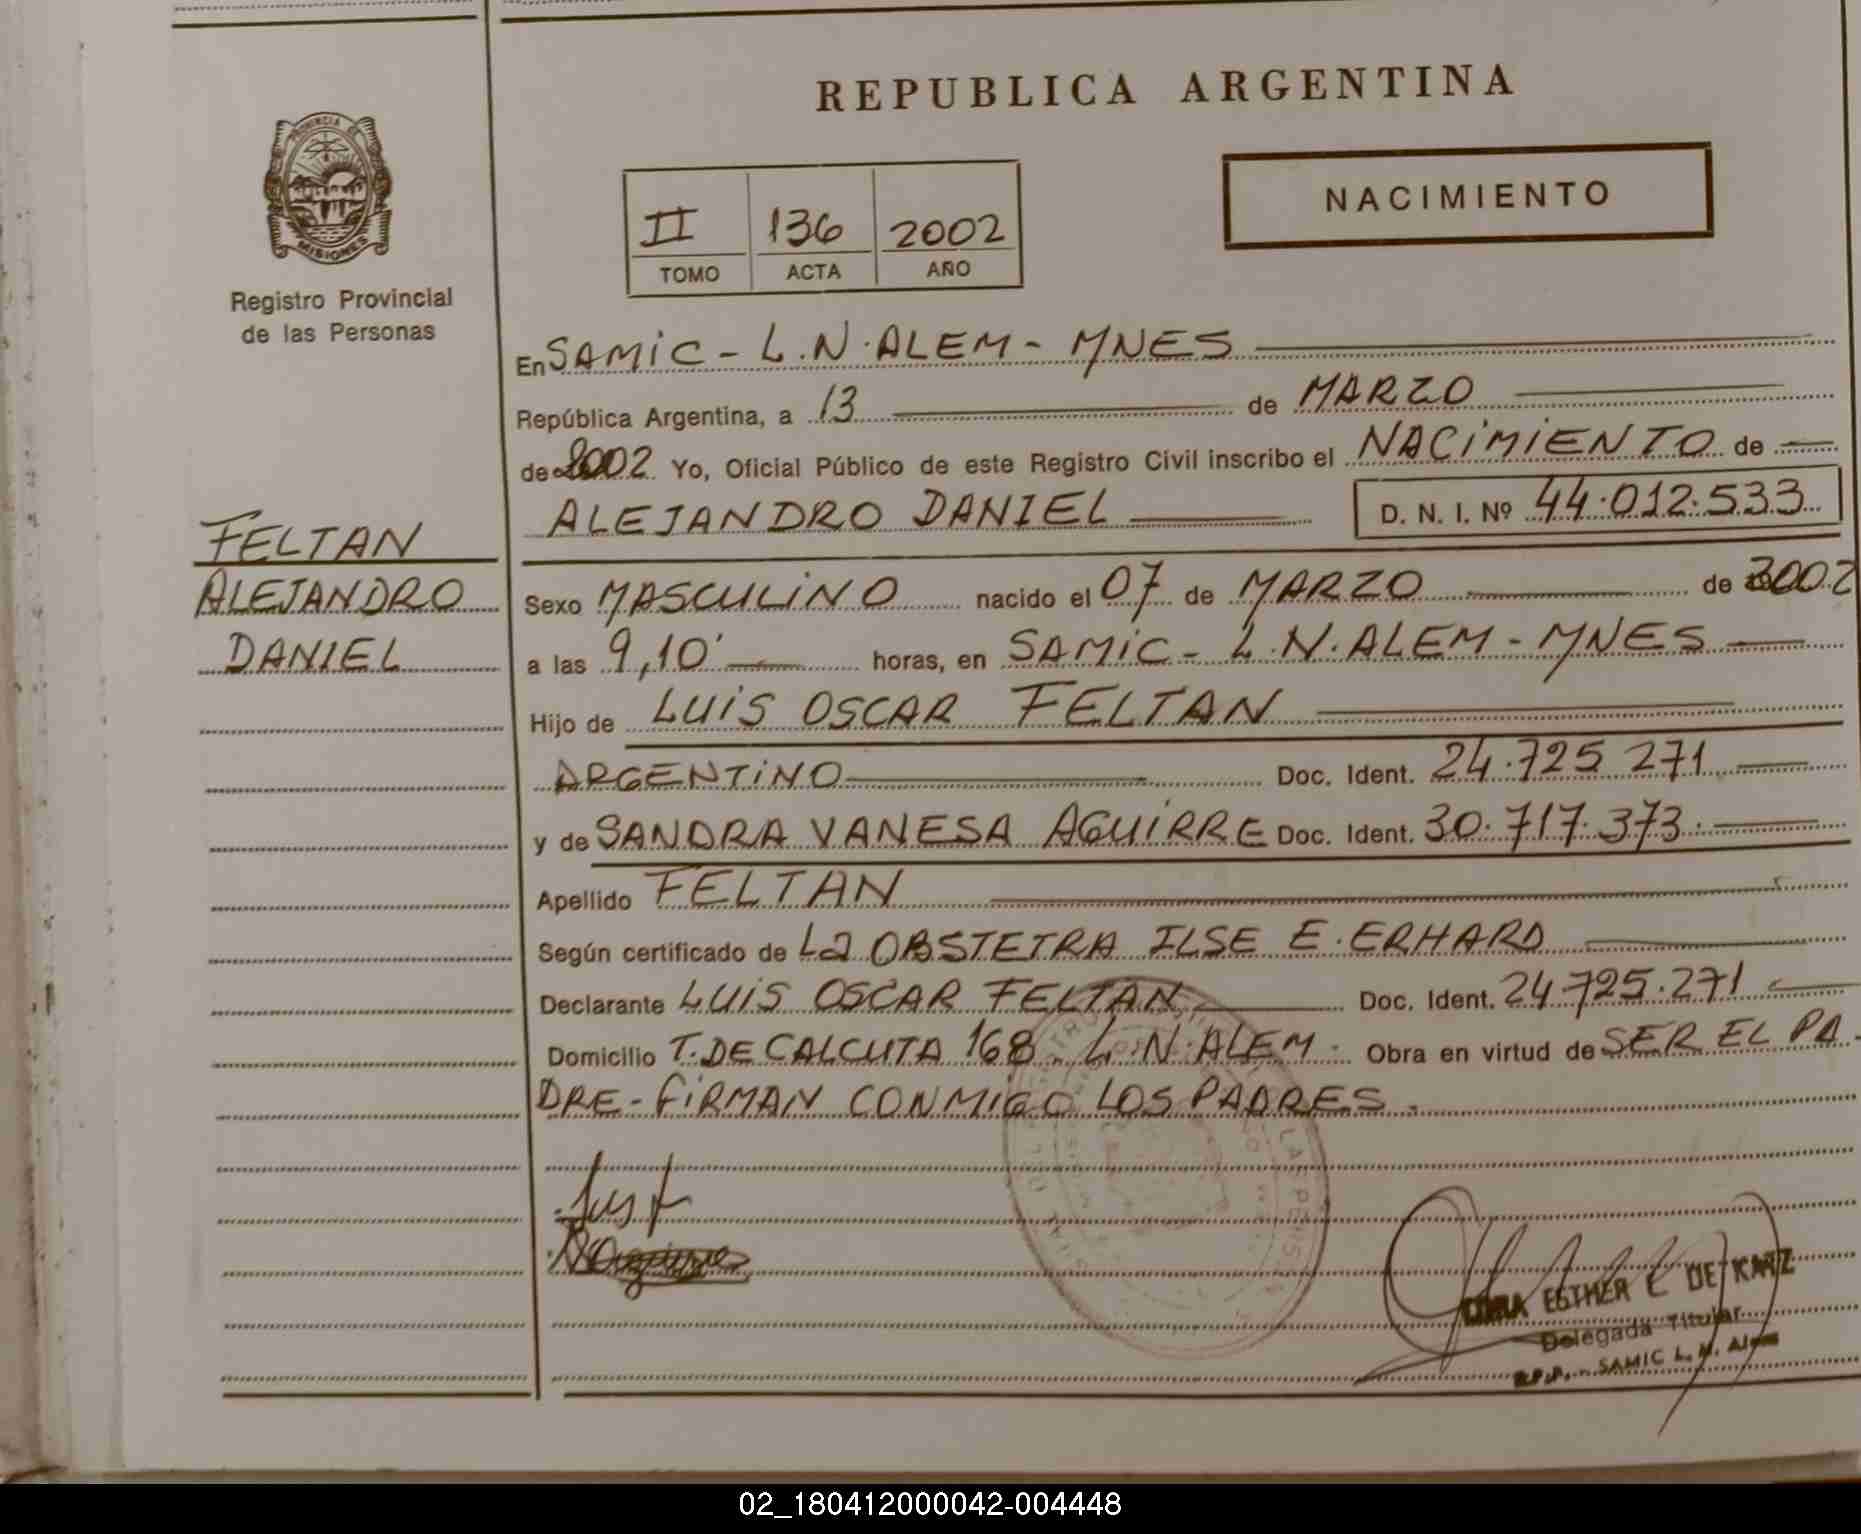 REPUBLICA ARGENTINA
PROVINCIA DE
MISIONES
Registro Provincial
de las Personas
II 136 2002
TOMO ACTA AÑO
NACIMIENTO
En SAMIC - L.N. ALEM - MNES
República Argentina, a 13 de MARZO
de 2002 Yo, Oficial Público de este Registro Civil inscribo el NACIMIENTO de
ALEJANDRO DANIEL D. N. I. Nº 44.012.533
FELTAN
ALEJANDRO
DANIEL
Sexo MASCULINO nacido el 07 de MARZO de 2002
a las 9,10' horas, en SAMIC - L.N. ALEM - MNES
Hijo de LUIS OSCAR FELTAN
ARGENTINO Doc. Ident. 24.725 271
y de SANDRA VANESA AGUIRRE Doc. Ident. 30.717.373.
Apellido FELTAN
Según certificado de La OBSTETRA ILSE E. ERHARD
Declarante LUIS OSCAR FELTAN Doc. Ident. 24.725.271
Domicilio T. DE CALCUTA 168. L.N. ALEM. Obra en virtud de SER EL PA-
DRE - FIRMAN CONMIGO LOS PADRES.
ESTHER E. DE KATZ
Delegada Titular
R.P.P. - SAMIC L. N. Alem
02_180412000042-004448